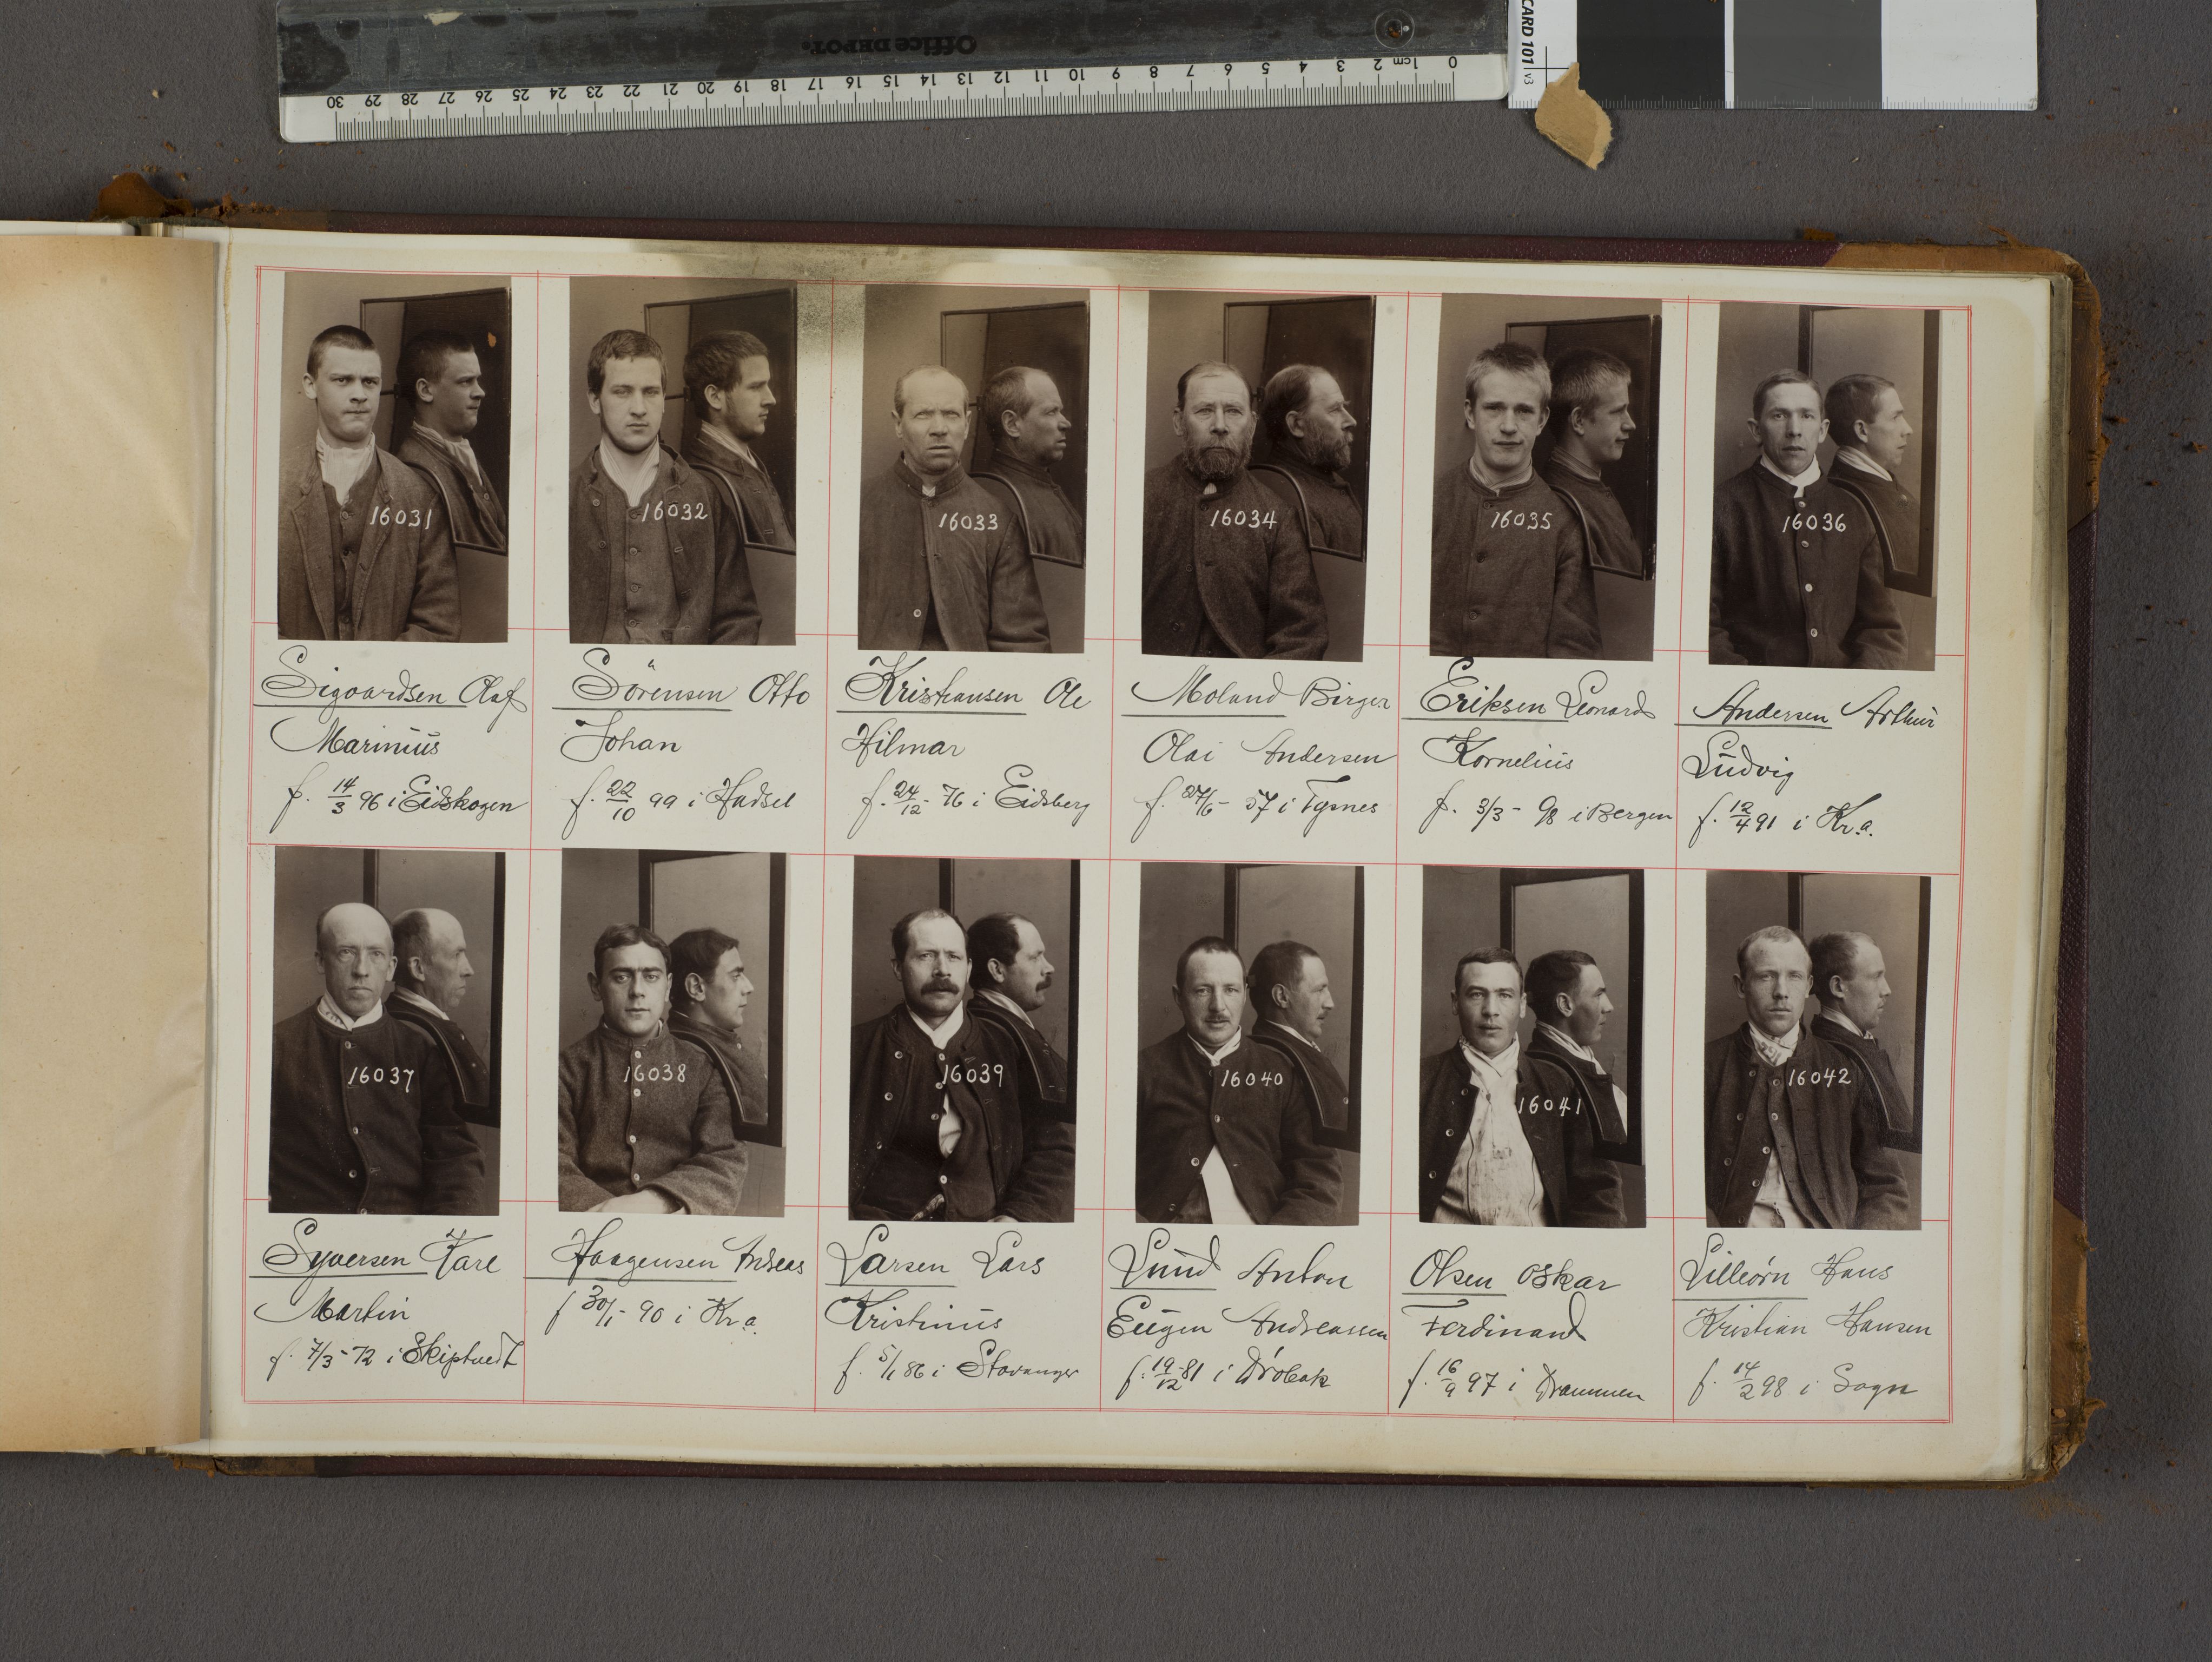 Office DEPOT.
0 1cm 2 3 4 5 6 7 8 9 10 11 12 13 14 15 16 17 18 19 20 21 22 23 24 25 26 27 28 29 30
CARD 101 v3
16031
16032
16033
16034
16035
16036
Sigvardsen Olaf
Marinius
f. 14/3 96 i Eidskogen
Sörensen Otto
Johan
f. 22/10 99 i Hadsel
Kristiansen Ole
Hilmar
f. 24/12 - 76 i Eidsberg
Moland Birger
Olai Andersen
f. 27/6 - 57 i Tysnes
Eriksen Leonard
Kornelius
f. 3/3 - 98 i Bergen
Andersen Arthur
Ludvig
f. 12/4 91 i Kr.a.
16037
16038
16039
16040
16041
16042
Syversen Kare
Martin
f. 7/3 - 72 i Skiptvedt
Haagensen Andreas
f 30/1 - 90 i Kr.a.
Larsen Lars
Kristinius
f. 5/1 86 i Stavanger
Lund Anton
Eugen Andreassen
f. 19/12 - 81 i Dröbak
Olsen Oskar
Ferdinand
f. 16/9 97 i Drammen
Lilleörn Hans
Kristian Hansen
f. 14/2 98 i Sogn